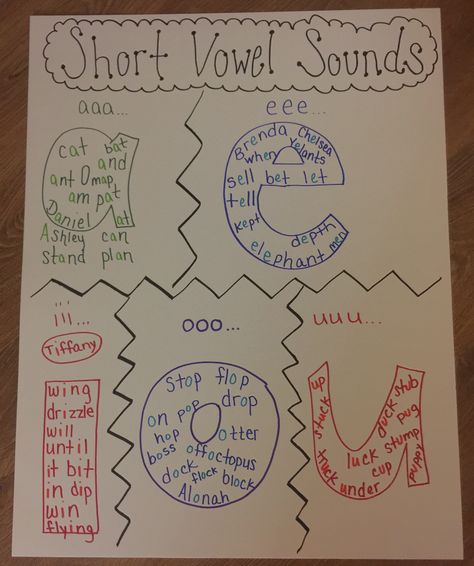 Short Vowel Sounds
aaa...
cat bat
and
ant map
am pat
Daniel at
Ashley can
stand plan
eee...
Brenda Chelsea
when Yelants
sell bet let
tell
kept depth
elephant men
iii...
Tiffany
wing
drizzle
will
until
it bit
in dip
win
flying
ooo...
stop flop
on pop drop
hop otter
boss off octopus
dock flock block
Alonah
uuu...
up stub
stuck duck pug
luck stump
truck cup
under puppy